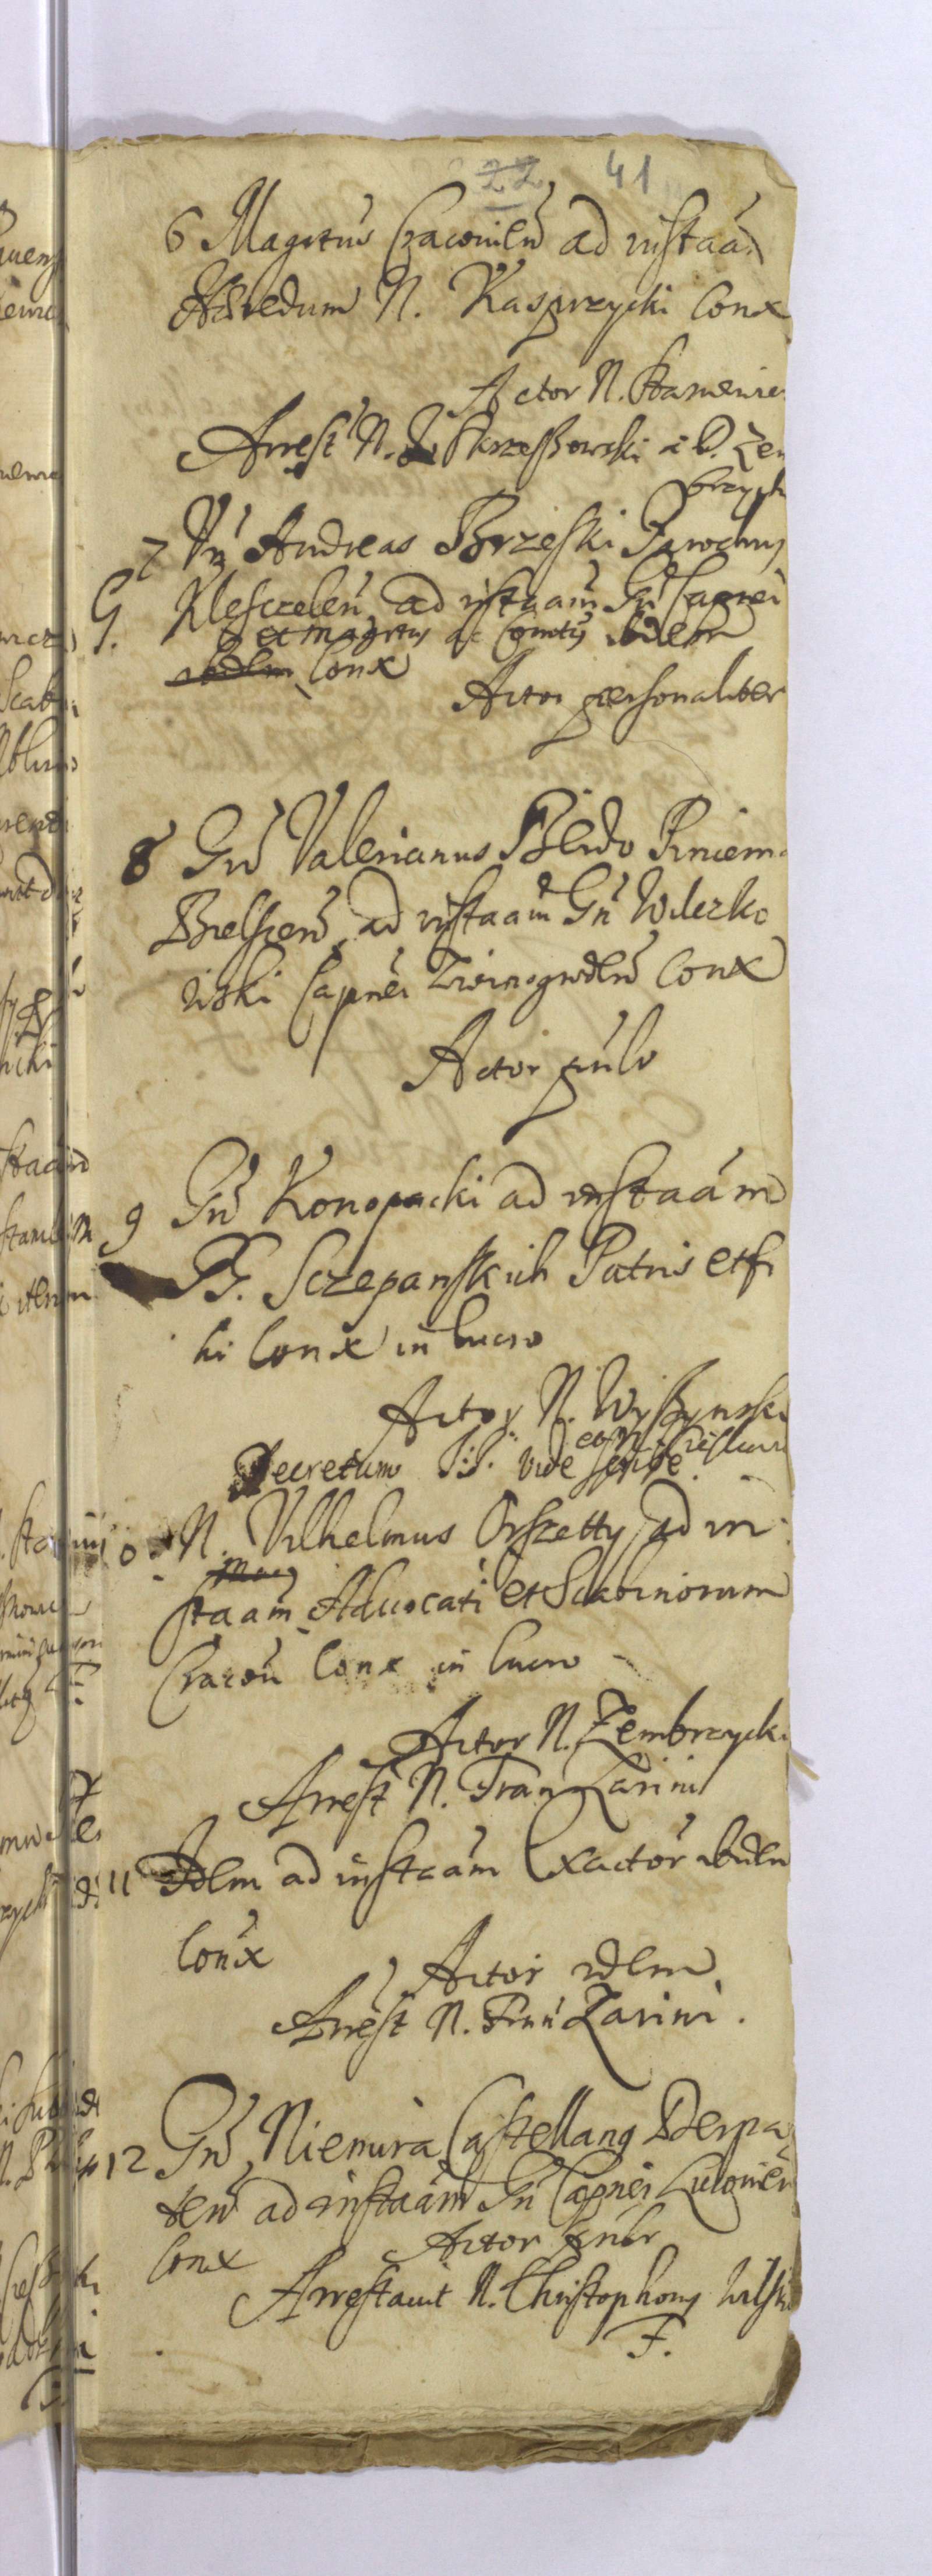 22 41
6 Magrtus Cracovien ad instaam
Haeredum N. Kasprzycki Conx
Actor N. Kamienie
Arrest N. Skrzeszowski a D. Zem
brzyck
7 Vn Andreas Brzeski Parochus
G. Klesczelen ad instaam Gn Capnei
et magrtus ac Comtis ibidem
ibidem Conx
Actor personaliter
8 Gn Valerianus Bledo Pniem
Bielscen ad instaam Gn Wilczko
wski Capnei Zwinogrodien Conx
Actor pnlr
9 Gn Konopacki ad instaam
PP. Sczepanskich Patris et fi
li Conx in lucro
Actor N. Wyszynski
Decretum vide
10 N. Vilhelmus Orszetty ad in
staam Advocati et Scabinorum
Cracov Conx in lucro
Actor N. Zembrzycki
Arrest N. Fran Zarini
11 Idem ad instaam Exactor ibidem
Conx
Actor idem
Arrest N. Fran Zarini.
12 Gn Niemira Castellang Derpa
ten ad instaam Gn Capnei
Conx Actor pnlr
Arrestavit N. Christophorus Wilski
F.